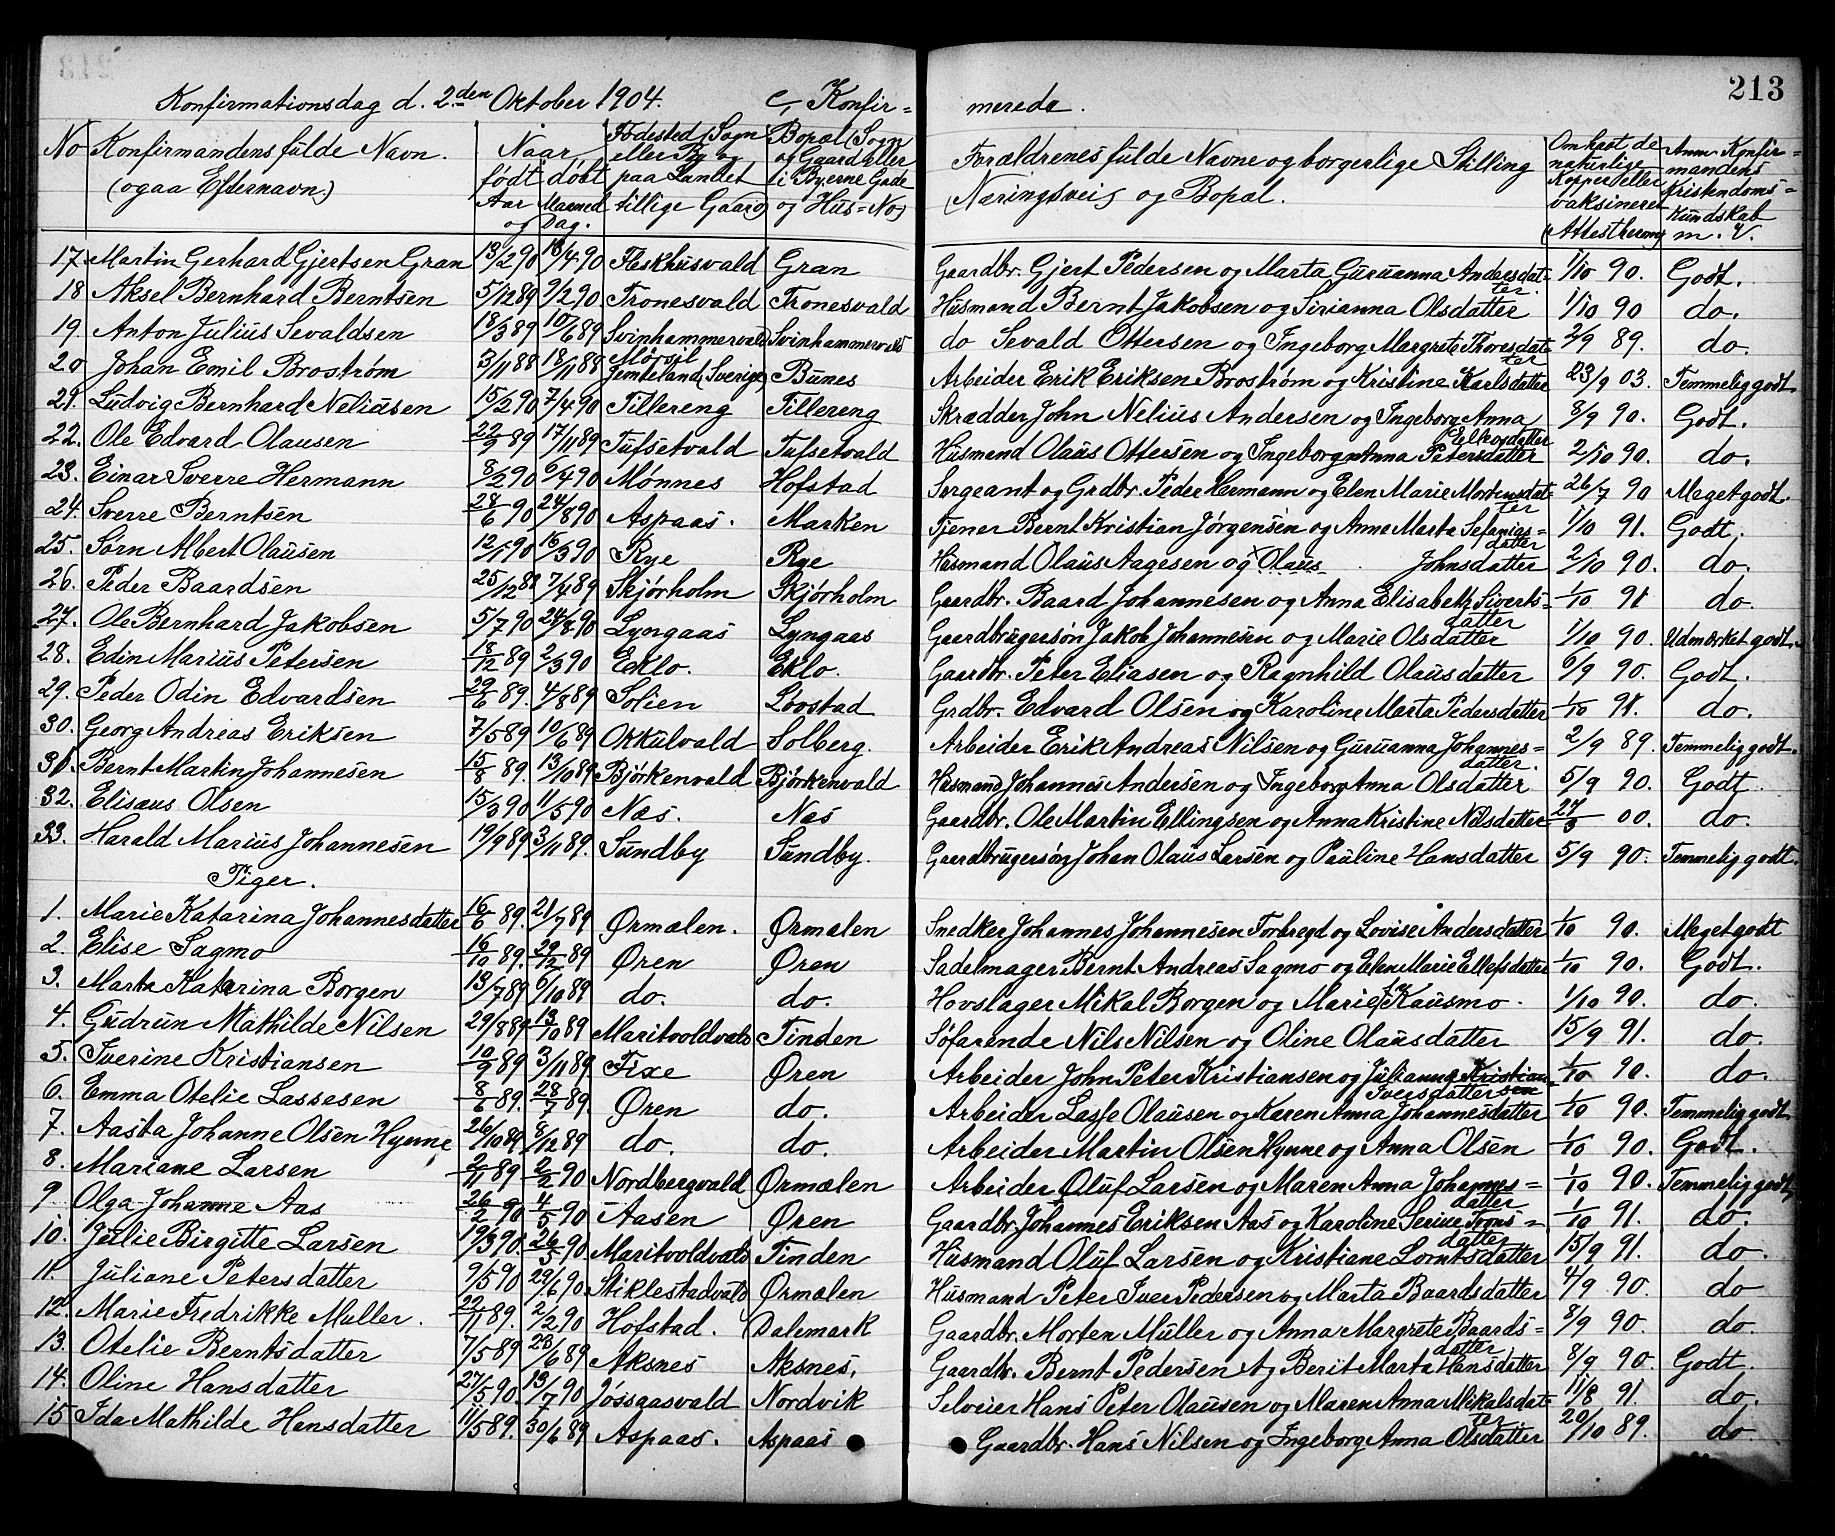 213
Konfirmationsdag d. 2den Oktober 1904. C, Konfir= merede.
No Konfirmandens fulde Navn. (ogaa Efternavn) Naar født døbt Aar Maaned og Dag. Fødested (Sogn eller By og paa Landet tillige Gaard) Bopæl (Sogn og Gaard eller i Byerne Gade og Hus=No) Forældrenes fulde Navne og borgerlige Stilling (Næringsvei) og Bopæl. Om havt de naturlige Kopper eller vaksineret (Attesthermed) Anm. Konfir= mandens Kristendoms= Kundskab m. V.
17. Martin Gerhard Gjertsen Gran 13/2 90 13/4 90 Fleskhusvald Gran Gaardbr. Gjert Pedersen og Marta Guruanna Andersdatter. 1/10 90. Godt.
18 Aksel Bernhard Berntsen 5/12 89 9/2 90 Tronesvald Tronesvald Husmand Bernt Jakobsen og Sirianna Olsdatter 1/10 90 do.
19. Anton Julius Sevaldsen 18/3 89 10/6 89 Svinhammervald Svinhammervald do Sevald Ottersen og Ingeborg Margrete Thoresdatter 2/9 89. do.
20 Johan Emil Brostrøm 3/11 88 18/11 88 Mörsil Jemteland (Sverige) Bunes Arbeider Erik Eriksen Brostrøm og Kristine Karlsdatter 23/9 03. Temmelig godt.
21. Ludvig Bernhard Neliusen 15/2 90 7/4 90 Tillereng Tillereng Skrædder John Nelius Andersen og Ingeborg Anna Ellevsdatter 8/9 90. Godt.
22. Ole Edvard Olausen 22/9 89 17/11 89 Tufsetvald Tufsetvald Husmand Olaus Ottersen og Ingeborganna Petersdatter 2/10 90. do.
23. Einar Sverre Hermann 8/2 90 6/4 90 Mønnes Hofstad Sergeant og Grdbr. Peder Hermann og Elen Marie Mortensdatter 26/7 90 Meget godt.
24. Sverre Berntsen 28/6 90 24/8 90 Aspaas. Marken Tjener Bernt Kristian Jørgensen og Anne Marta Sefanias= datter 1/10 91. Godt.
25. Sørn Albert Olausen 12/1 90 16/3 90 Rye Rye Husmand Olaus Aagesen og Olaus Johnsdatter 2/10 90. do.
26. Peder Baardsen 25/12 88 7/4 89 Skjørholm Skjørholm Gaardbr. Baard Johannesen og Anna Elisabeth Siverts= datter 1/10 91 do.
27. Ole Bernhard Jakobsen 5/7 90 24/8 90 Lyngaas Lyngaas Gaardbrugersøn Jakob Johannesen og Marie Olsdatter 1/10 90. Udmærket godt.
28. Edin Marius Petersen 18/12 89 2/3 90 Eklo. Eklo. Gaardbr. Peter Eliasen og Ragnhild Olausdatter 6/9 90. Godt.
29. Peder Odin Edvardsen 29/6 89. 4/8 89 Solien Loostad Grdbr. Edvard Olsen og Karoline Marta Pedersdatter 1/10 91. do.
30. Georg Andreas Eriksen 7/5 89 10/6 89 Okkulvald Solberg. Arbeider Erik Andreas Nilsen og Guruanna Johannes= datter. 2/9 89. Temmelig godt.
31. Bernt Martin Johannesen 15/8 89. 13/10 89 Bjørkenvald Bjørkenvald Husmand Johannes Andersen og Ingeborg Anna Olsdatter 5/9 90. Godt
32. Elisæus Olsen 15/3 90 11/5 90 Næs. Næs Gaardbr. Ole Martin Ellingsen og Anna Kristine Nilsdatter 27/3 00. do.
33. Harald Marius Johannesen 19/9 89 3/11 89. Sundby Sundby. Gaardbrugersøn Johan Olaus Larsen og Pauline Hansdatter 5/9 90. Temmelig godt.
Piger.
1. Marie Katarina Johannesdatter 16/6 89. 21/7 89 Ørmælen. Ørmælen Snedker Johannes Johannesen Forbregd og Lovise Andersdatter 1/10 90. Meget godt
2. Elise Sagmo 16/10 89. 29/12 89 Øren Øren Sadelmager Bernt Andreas Sagmo og Elen Marie Ellefsdatter 1/10 90. Godt.
3. Marta Katarina Borgen 13/7 89 6/10 89 do. do. Hovslager Mikal Borgen og Marie f. Kausmo. 1/10 90. do.
4. Gudrun Mathilde Nilsen 29/8 89. 13/10 89 Maritvoldvald Tinden Søfarende Nils Nilsen og Oline Olausdatter 15/9 91. do.
5. Iverine Kristiansen 10/9 89 3/11 89 Fixe Øren Arbeider John Peter Kristiansen og Julianna Kristiansen Iversdatter 1/10 90. do.
6. Emma Otelie Lassesen 8/6 89. 28/7 89. Øren do. Arbeider Lasse Olausen og Karen Anna Johannesdatter 1/10 90. Temmelig godt
7. Aasta Johanne Olsen Hynne 26/10 89 8/12 89 do. do. Arbeider Martin Olsen Hynne og Anna Olsen 1/10 90. Godt.
8. Mariane Larsen 2/11 89 2/2 90 Nordbergvald Ørmælen Arbeider Oluf Larsen og Maren Anna Johannes= datter 1/10 90. Temmelig godt
9 Olga Johanne Aas 26/2 90 4/5 90 Aasen Øren Gaardbr. Johannes Eriksen Aas og Karoline Serine Tons= datter 1/10 91. do.
10. Julie Birgitte Larsen 19/3 90. 26/5 90 Maritvoldvald Tinden Husmand Oluf Larsen og Kristiane Lorntsdatter 15/9 91. do.
11. Juliane Petersdatter 9/5 90 29/6 90 Stiklestadvald Ørmælen Husmand Peter Iver Pedersen og Marta Baardsdatter 4/9 90. do
12. Marie Fredrikke Muller. 22/11 89. 2/2 90 Hofstad. Dalemark Gaardbr. Morten Müller og Anna Margrete Baards= datter 8/9 90. do.
13. Otelie Berntsdatter 7/5 89 23/6 89 Aksnes Aksnes. Gaardbr. Bernt Pedersen og Berit Marta Hansdatter 8/9 90. Godt.
14. Oline Hansdatter 27/5 90. 13/7 90 Jøssaasvald Nordvik Selveier Hans Peter Olausen og Maren Anna Mikalsdatter 11/8 91. do.
15. Ida Mathilde Hansdatter 11/5 89. 30/6 89 Aspaas. Aspaas Gaardbr. Hans Nilsen og Ingeborg Anna Olsdatter 20/10 89. do